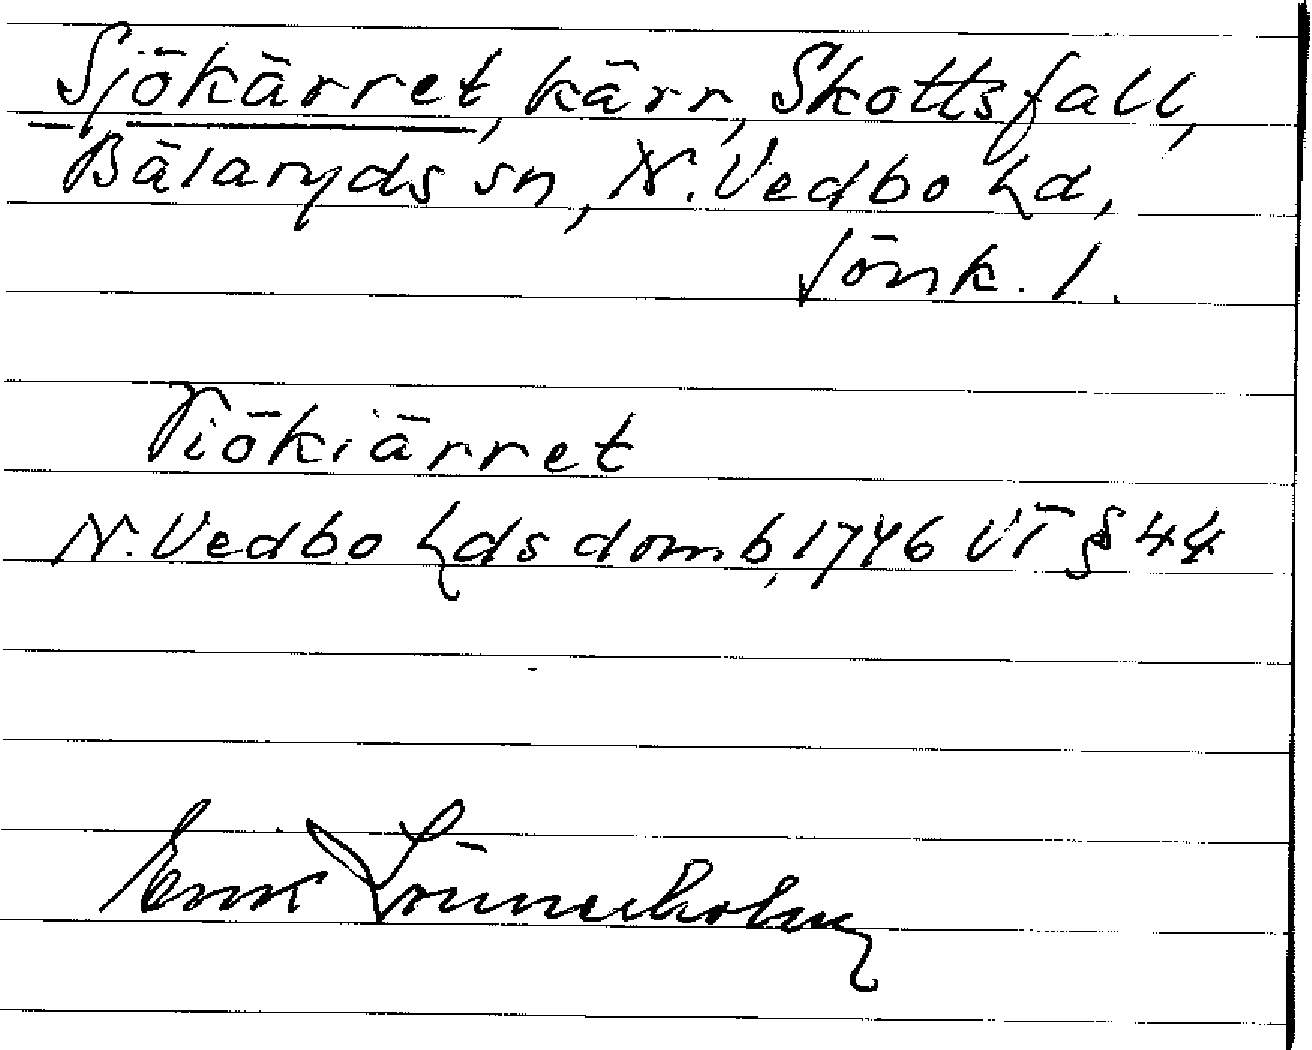 Sjökärret, kärr, Skottsfall,
Bälaryds sn, N. Vedbo hd,
Jönk. l.
Tiökiärret
N. Vedbo hds domb, 1746 VT § 44
Erik Lönnerholm